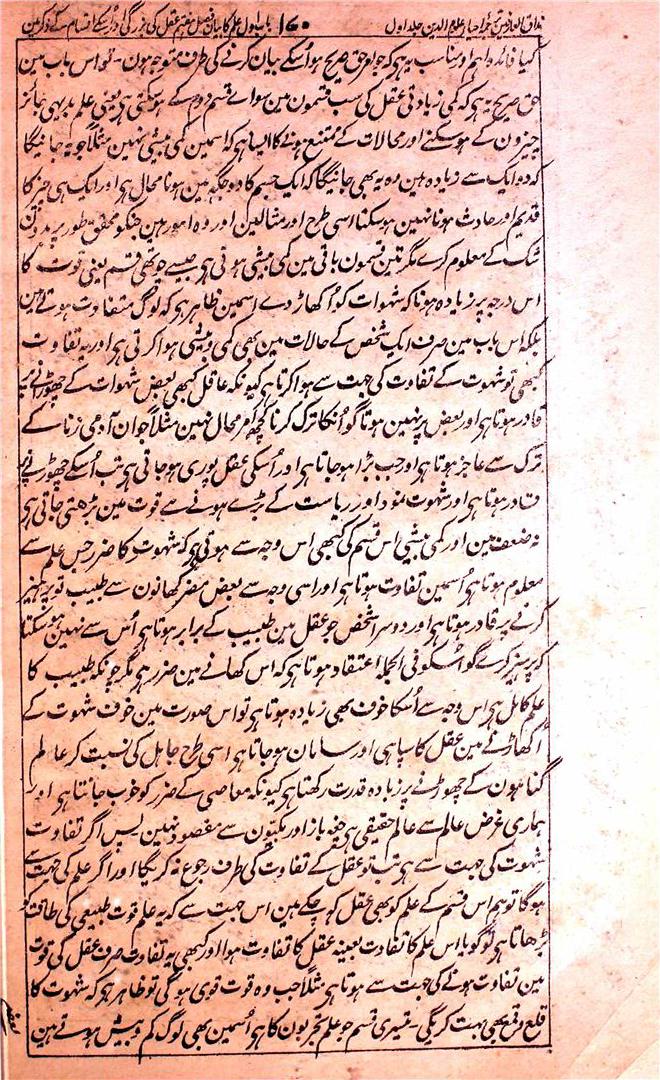 مذاق العارفین ترجمہ احیاء علوم الدین جلد اول ۱۷۰ باب اول علم کا بیان فصل ہفتم عقل کی بزرگی اور اسکے اقسام کے ذکر مین
کیا فائدہ اہم اور مناسب یہ ہے کہ جو امر حق صریح ہو اُسکے بیان کرنے کی طرف متوجہ ہون۔ تو اس باب مین
حق صریح یہ ہے کہ کمی زیادتی عقل کی سب قسمون مین سواے قسم دوم کے ہو سکتی ہے یعنی علم بدیہی جائز
چیزون کے ہو سکنے اور محالات کے ممتنع ہونے کا ایسا ہے کہ اسمین کمی بیشی نہین مثلاً جو یہ جانیگا
کہ دو ایک سے زیادہ ہین وہ یہ بھی جانیگا کہ ایک جسم کا دو جگہ مین ہونا محال ہے اور ایک ہی چیز کا
قدیم اور حادث ہونا نہین ہو سکتا اسی طرح اور مثالین اور وہ امور ہین جنکو محقق طور پر بدون
شک کے معلوم کرے مگر تین قسمون باقی مین کمی بیشی ہوتی ہے جیسے چوتھی قسم یعنی قوت کا
اس درجہ پر زیادہ ہونا کہ شہوات کو اُکھاڑ دے اسمین ظاہر ہے کہ لوگ متفاوت ہوتے ہین
بلکہ اس باب مین صرف ایک شخص کے حالات مین بھی کمی و بیشی ہوا کرتی ہے اور یہ تفاوت
کبھی تو شہوت کے تفاوت کی جہت سے ہوا کرتا ہے کیونکہ عاقل کبھی بعض شہوات کے چھوڑنے پر
قادر ہوتا ہے اور بعض پر نہین ہوتا گو اُنکا ترک کرنا کچھ امر محال نہین مثلاً جوان آدمی زنا کے
ترک سے عاجز ہوتا ہے اور جب بڑا ہو جاتا ہے اور اُسکی عقل پوری ہو جاتی ہے تب اُسکے چھوڑنے پر
قادر ہوتا ہے اور شہوت نمود اور ریاست کے بڑے ہونے سے قوت مین بڑھتی جاتی ہے
نہ ضعف مین اور کمی بیشی اس قسم کی کبھی اس وجہ سے ہوتی ہے کہ شہوت کا ضرر جس علم سے
معلوم ہوتا ہے اُسمین تفاوت ہوتا ہے اور اسی وجہ سے بعض مضر کھانون سے طبیب تو پرہیز
کرنے پر قادر ہوتا ہے اور دوسرا شخص جو عقل مین طبیب کے برابر ہوتا ہے اُس سے نہین ہو سکتا
کہ پرہیز کرے گو اُسکو فی الجملہ اعتقاد ہوتا ہے کہ اس کھانے مین ضرر ہے مگر چونکہ طبیب کا
علم کامل ہے اس وجہ سے اُسکا خوف بھی زیادہ ہوتا ہے تو اس صورت مین خوف شہوت کے
اُکھاڑنے مین عقل کا سپاہی اور سامان ہو جاتا ہے اسی طرح جاہل کی نسبت کر عالم
گناہون کے چھوڑنے پر زیادہ قدرت رکھتا ہے کیونکہ معاصی کے ضرر کو خوب جانتا ہے اور
ہماری غرض عالم سے عالم حقیقی ہے جبہ باز اور بکیون سے مقصود نہین پس اگر تفاوت
شہوت کی جہت سے ہے تب تو عقل کے تفاوت کی طرف رجوع نہ کریگا اور اگر علم کی جہت سے
ہوگا تو ہم اس قسم کے علم کو بھی عقل کہہ چکے ہین اس جہت سے کہ یہ علم قوت طبیعی کی طاقت کو
بڑھاتا ہے تو گویا اس علم کا تفاوت بعینہ عقل کا تفاوت ہوا اور کبھی یہ تفاوت صرف عقل کی قوت
مین تفاوت ہونے کی جہت سے ہوتا ہے مثلاً جب وہ قوت قوی ہوگی تو ظاہر ہے کہ شہوت کا
قلع و قمع بھی بہت کریگی۔ تیسری قسم جو علم تجربون کا ہے اُسمین بھی لوگ کم و بیش ہوتے ہین
بعضے